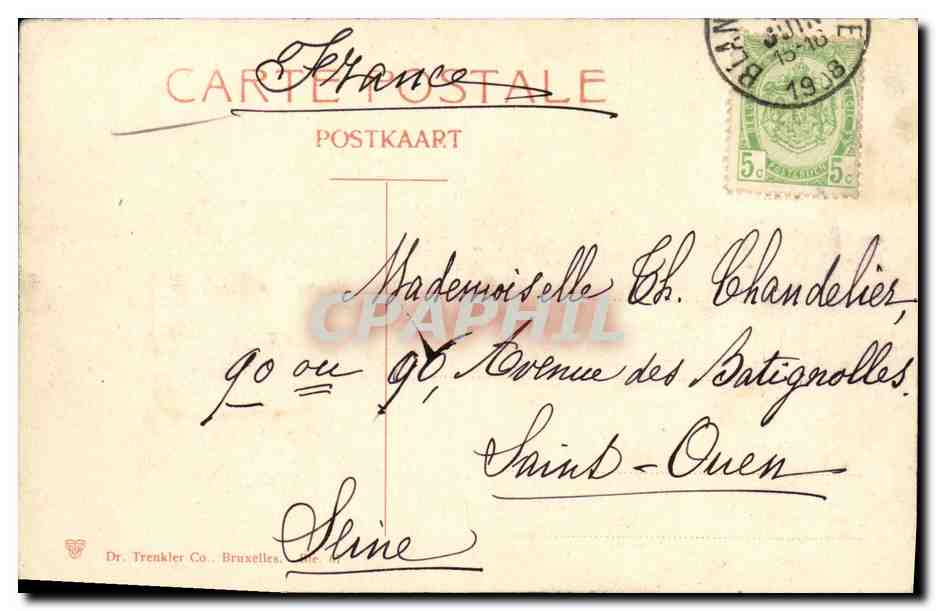 France
CARTE POSTALE
POSTKAART
JUIN
15-16
1908
5c 5c
CPAPHIL
Mademoiselle Th. Chandelier,
90 ou 96, Avenue des Batignolles.
Saint-Ouen
Seine
Dr. Trenkler Co., Bruxelles.